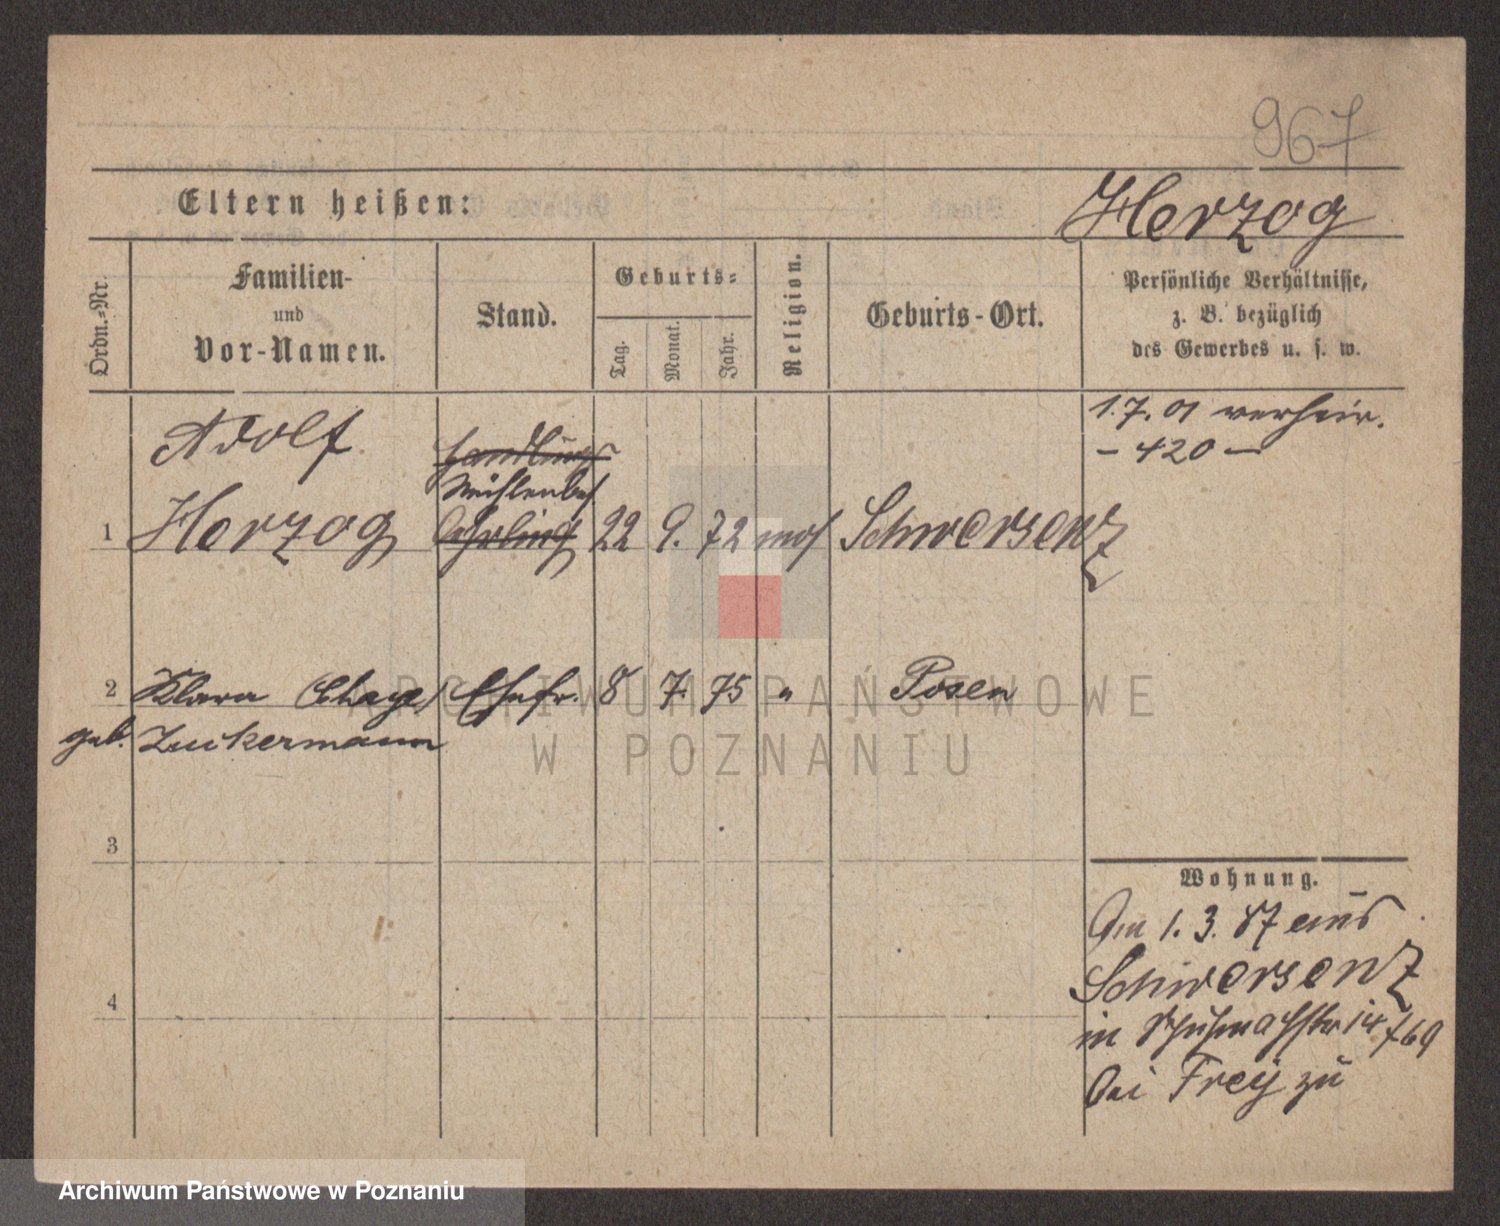 967
Eltern heißen:
Herzog
Ordn.=Nr.
Familien-
und
Vor-Namen.
Stand.
Geburts=
Tag.
Monat.
Jahr.
Religion.
Geburts-Ort.
Persönliche Verhältnisse,
z. B. bezüglich
des Gewerbes u. s. w.
1.7.01 verheir.
- 420 -
Adolf
Handlungs
Mühlenbes
1 Herzog Lehrling 22 9. 72 mos Schwersenz
2 Klara (Chaye) Ehefr. 8 7. 75 " Posen
geb. Zuckermann
3
Wohnung.
Am 1. 3. 87 aus
Schwersenz
4
in Schuhmachstr 14
bei Frey zu
ARCHIWUM PAŃSTWOWE
W POZNANIU
Archiwum Państwowe w Poznaniu